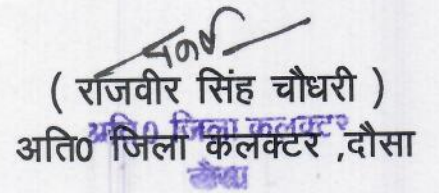 ( राजवीर सिंह चौधरी )
अति0 जिला कलक्टर ,दौसा
अति0 जिला कलक्टर
दौसा